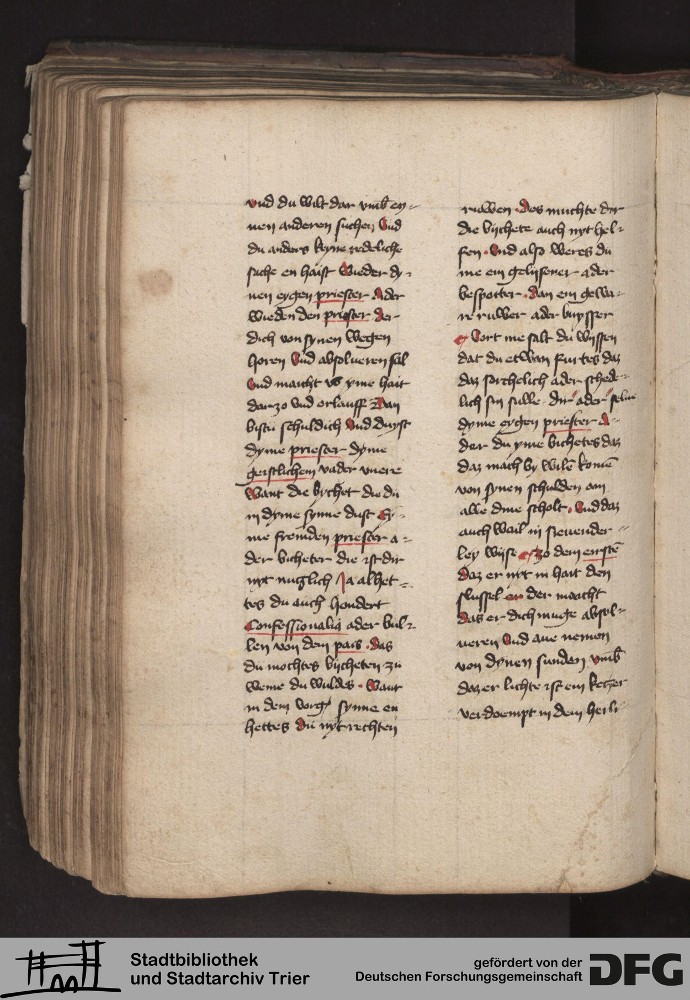 vnd du wilt dar vmb ey-
nen anderen suchen Vnd
du anders keyne redeliche
sache en haist Wieder dy-
nen eygen priester Ader
wieden den priester der
dich von synen wegen
horen Vnd absolueren sal
Vnd maicht vs yme hait
darzo vnd orlauff Dan
bistu schuldich Vnd duyst
dyme priester dyme
geistlichem vader vnere
Want die bychet die du
in dyme synne dust Ey-
me fremden priester a-
der bicheter die ist dir
nyt nutzlich Ja al het-
tes du auch hondert
Confessionalia ader bul-
len von dem pais Das
du mochtes bycheten zu
weme du wuldes Want
in dem vorg synne en
hettes du nyt rechten
ruwen Des muchte dir
die bychete auch nyt hel-
fen Vnd also weres du
me ein gelysener ader
bespotter Dan ein gewa-
re ruwer ader buysser
Vort me salt du wyssen
dat du etwan furtes daz
daz sorchelich ader schede-
lich sin sulle dir ader selue
dyme eygen priester A-
der du yme bichetes daz
daz mach by wilen komen
von synen schulden am
alle dine scholt Vnd daz
auch wail in sieuender
ley wyse zo dem eirsten
Daz er nyt in hait den
slussel er der moacht
Das er dich muge absol-
ueren Vnd aue nemen
von dynen sunden vmb
daz er lichte ist ein ketzer
verdoempt in dem heili-
Stadtbibliothek
und Stadtarchiv Trier
gefördert von der
Deutschen Forschungsgemeinschaft
DFG